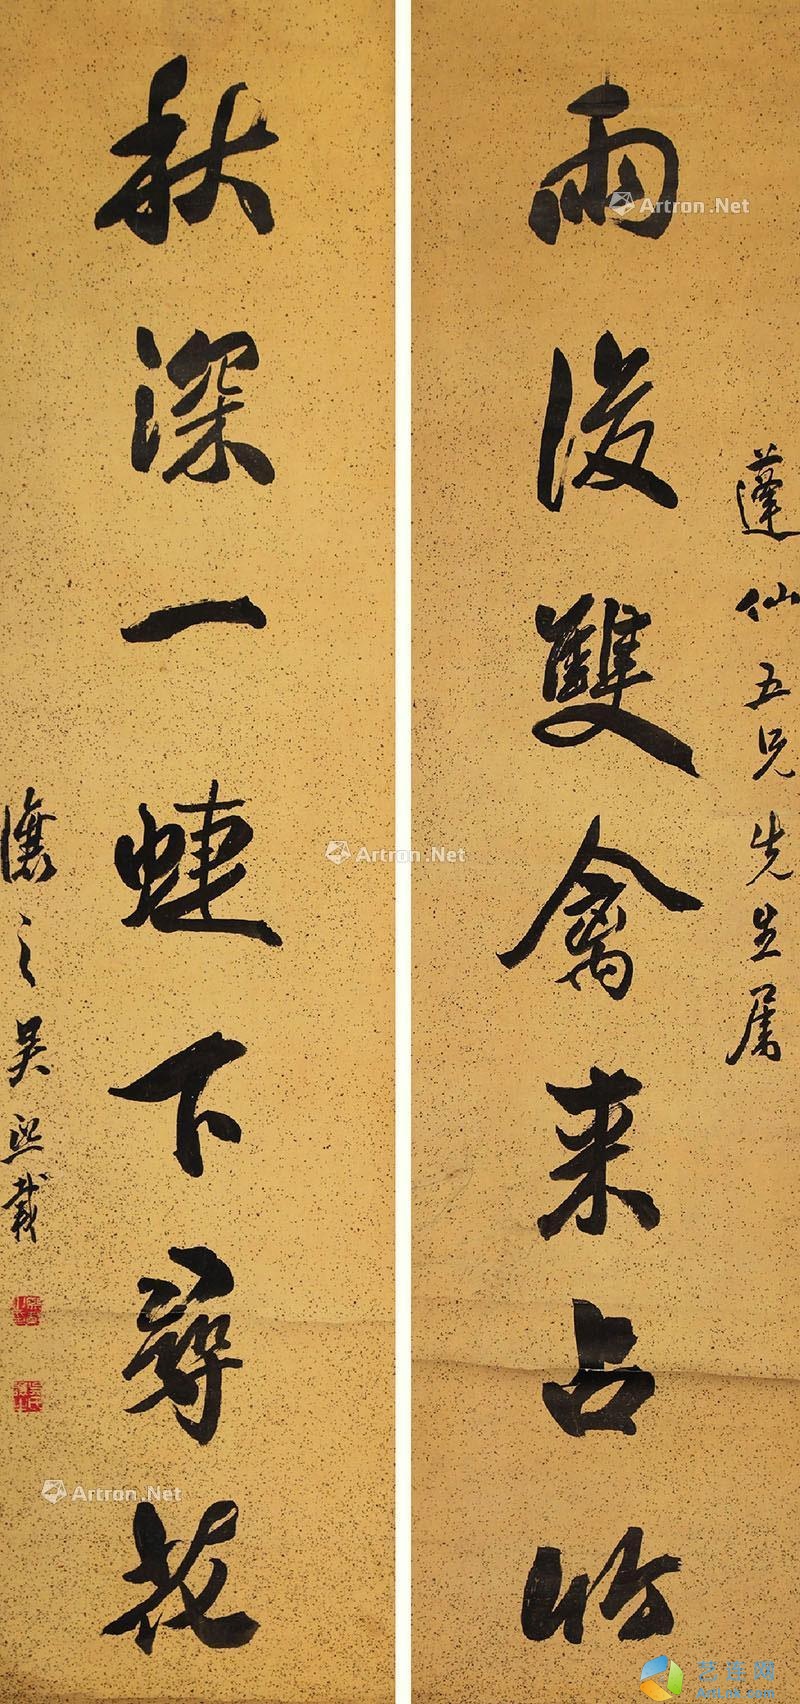 蓬仙五兄先生属
雨後雙禽来占竹
秋深一蜨下尋花
讓之吴熙載
Artron.Net
Artron.Net
Artron.Net
艺连网